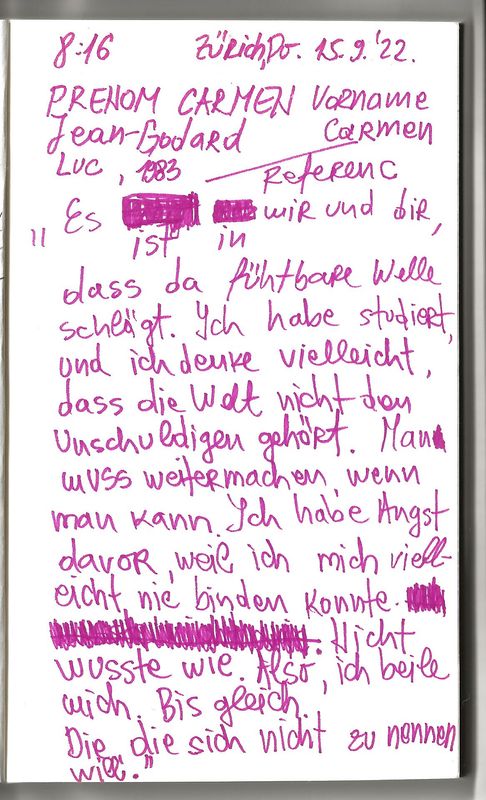 8:16 Zürich, Do. 15.9.'22.
PRENOM CARMEN Vorname
Jean-Godard Carmen
Luc, 1983
Referenc
"Es wir und dir,
ist in
dass da fühtbare Welle
schlägt. Ich habe studiert,
und ich denke vielleicht,
dass die Welt nicht den
Unschuldigen gehört. Man
muss weitermachen wenn
man kann. Ich habe Angst
davor, weil ich mich viell-
eicht nie binden konnte.
Nicht
wusste wie. Also, ich beile
mich. Bis gleich.
Die, die sich nicht zu nennen
will."